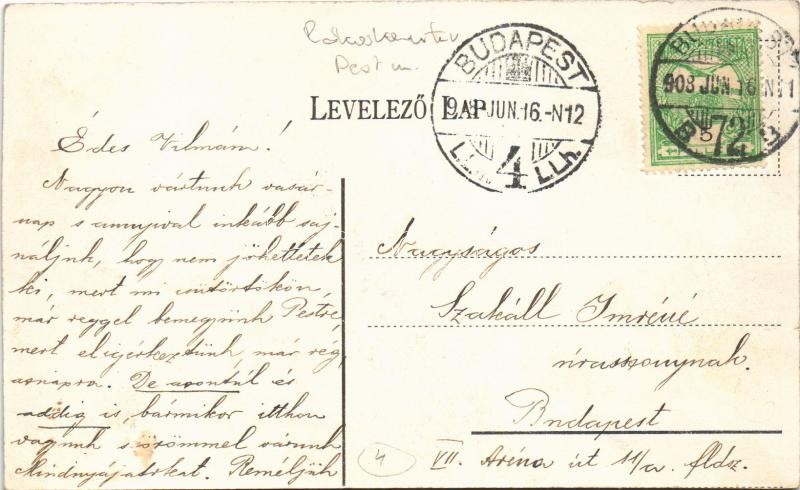 Pest m.
BUDAPEST
908 JUN.16.-N12
4
LLh.
BUDAPEST
908 JUN 16 N11
B 72 3
5
LEVELEZŐ LAP
Édes Vilmám!
Nagyon vártunk vasár-
nap s annyival inkább saj-
náljuk, hogy nem jöhettetek
ki, mert mi csütörtökön,
már reggel bemegyünk Pestre
mert eligérkeztünk, már rég,
aznapra. De azontúl és
addig is, bármikor itthon
vagyunk s örömmel várunk
Mindnyájatokat. Reméljük
Nagyságos
Szakáll Imréné
úrasszonynak.
Budapest
VII. Aréna út 11/a. fldsz.
4